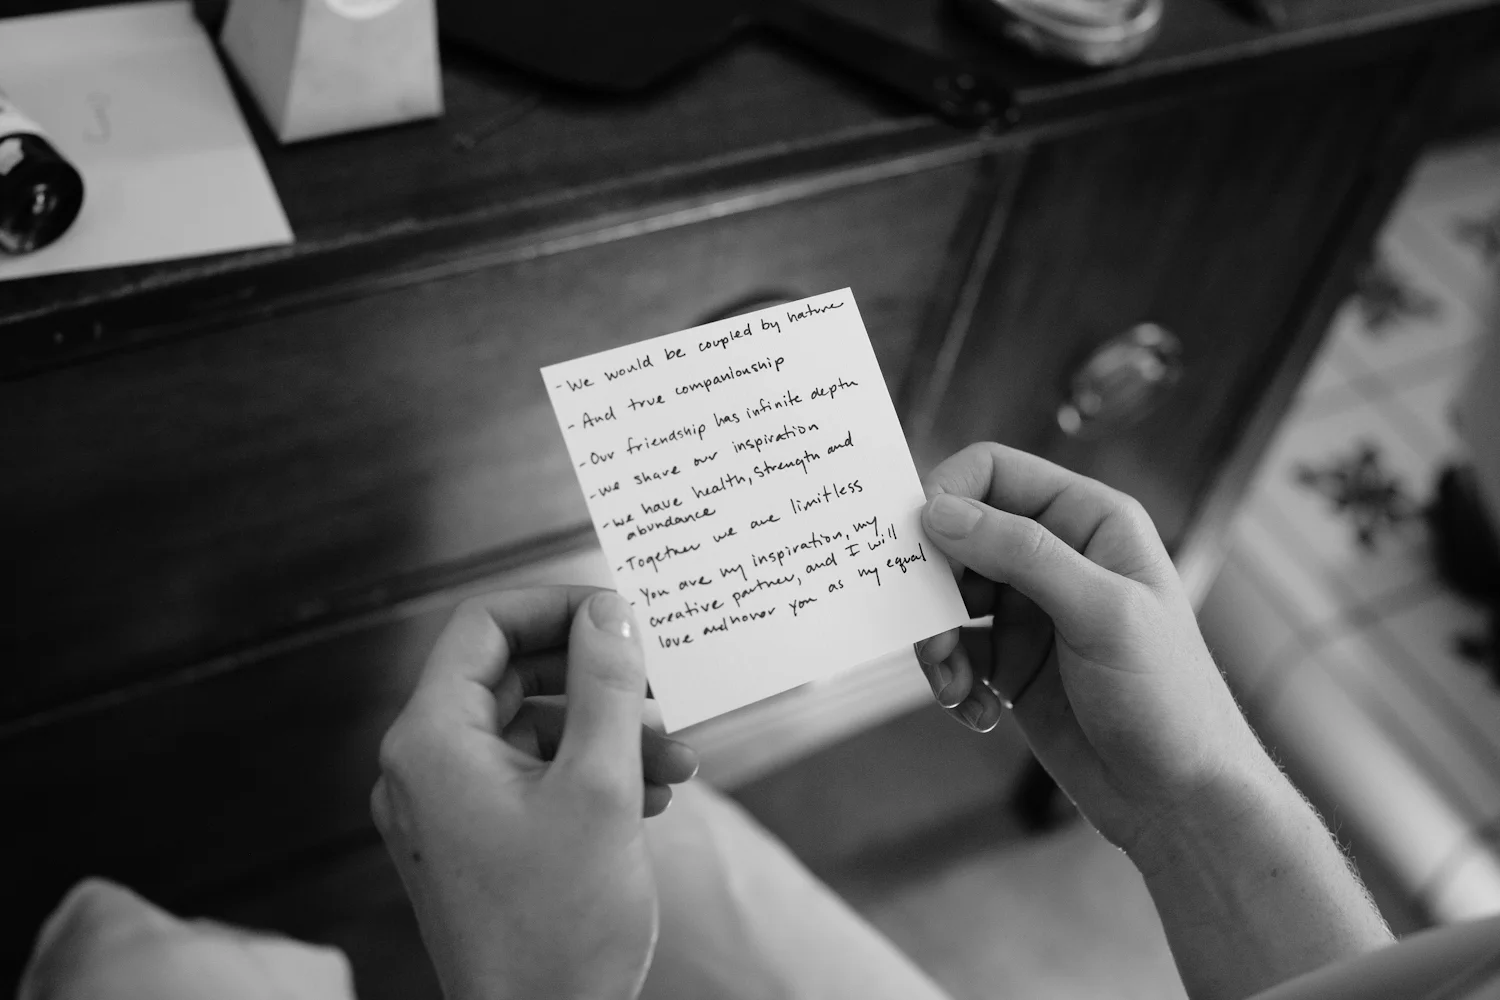 - We would be coupled by nature
- And true companionship
- Our friendship has infinite depth
- we share our inspiration
- we have health, strength and
abundance
- Together we are limitless
- You are my inspiration, my
creative partner, and I will
love and honor you as my equal
J